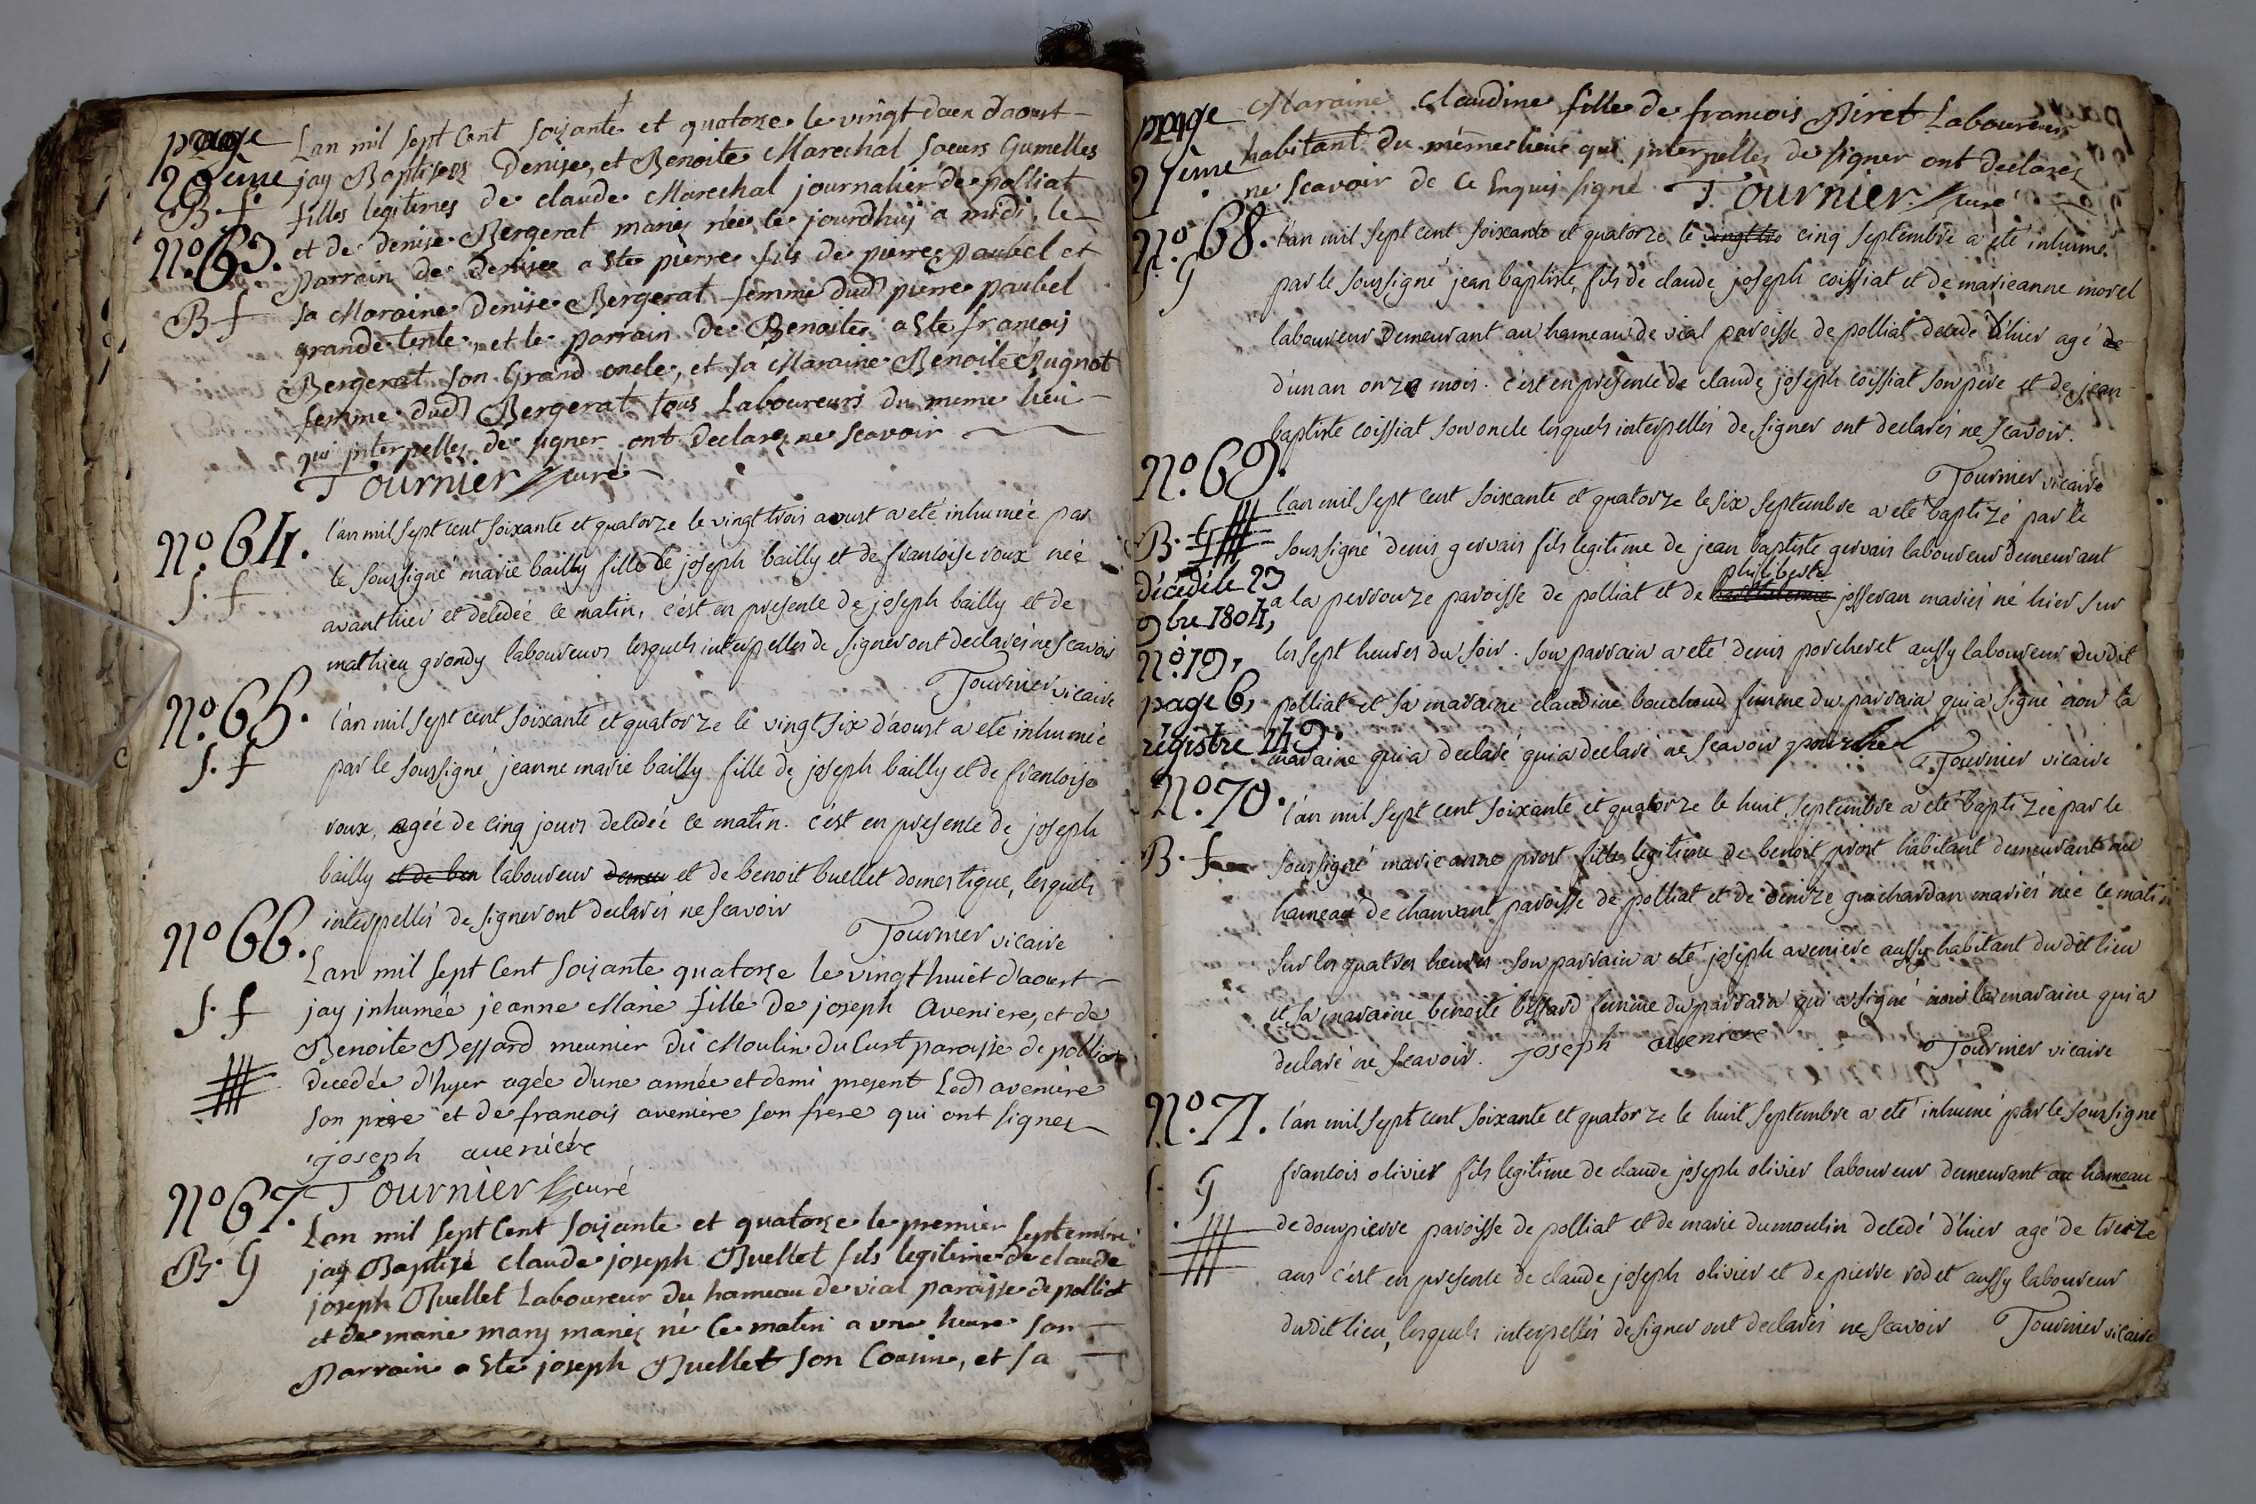 page
20ème
B. f
No. 63.
B. f
Lan mil sept Cent soixante et quatorze le vingt daoust
jay Baptisez Denise, et Benoite Marechal soeurs Gumelles
filles legitimes de claude Marechal journalier de polliat
et de denise Bergerat mariez née le jourdhuy a midi, le
Parrain de denise a Ete pierre fils de pierre paubel et
sa Maraine Denise Bergerat femme dud pierre paubel
grande tente, et le parrain de Benoite a Ete francois
Bergerat son Grand oncle, et sa Maraine Benoite Bugnot
femme dud Bergerat tous Laboureurs du meme lieu
qui interpellez de signer ont Declarez ne scavoir
Tournier curé
No. 64.
S. f
l'an mil sept cent soixante et quatorze le vingt trois aoust a eté inhumée par
le soussigné marie bailly fille de joseph bailly et de francoise roux née
avant hier et decedée ce matin, c'est en presence de joseph bailly et de
mathieu grondy laboureurs lesquels interpellés de signer ont declarés ne scavoir
Tournier vicaire
No. 65.
S. f
l'an mil sept cent soixante et quatorze le vingt six d'aoust a eté inhumée
par le soussigné jeanne marie bailly fille de joseph bailly et de francoise
roux, agée de cinq jours decedée ce matin. c'est en presence de joseph
bailly et de ben laboureur demeu et de benoit buellet domestique, lesquels
interpellés de signer ont declarés ne scavoir
Tournier vicaire
No 66.
S. f
Lan mil sept Cent soixante quatorze le vingt huiet d'aoust
jay inhumée jeanne Marie fille de joseph Aveniere, et de
Benoite Bessard meunier du Moulin du Curt paroisse de polliat
decedée d'hyer agée d'une année et demi present Led aveniere
son père et de francois aveniere son frere qui ont signez
joseph aueniere
Tournier curé
No 67.
B. G
Lan mil sept Cent soixante et quatorze le premier septembre
jay Baptisé claude joseph Buellet fils legitime de claude
joseph Buellet Laboureur du hameau de vial paroisse de polliat
et de marie mary mariez né ce matin a une heure son
Parrain a Ete joseph Buellet son Cousin, et sa
page
21ème
Maraine Claudine fille de francois Piret Laboureur
habitant du même lieu qui interpellez de signer ont declarez
ne scavoir de ce Enquis signé Tournier curé
No. 68.
S. G
l'an mil sept cent soixante et quatorze le vingt tro cinq septembre a eté inhumé
par le soussigné jean baptiste fils de claude joseph coissiat et de marieanne morel
laboureur demeurant au hameau de vial paroisse de polliat decedé d'hier agé de
d'un an onze mois. c'est en presence de claude joseph coissiat son pere et de jean
baptiste coissiat son oncle lesquels interpellés de signer ont declarés ne scavoir.
Tournier vicaire
No. 69.
B. G
décédé le 23
9bre 1804,
No. 19,
page 6,
régistre 149.
l'an mil sept cent soixante et quatorze le six septembre a eté baptizé par le
soussigné denis gervais fils legitime de jean baptiste gervais laboureur demeurant
philiberte
a la perrouze paroisse de polliat et de josseran mariés né hier sur
les sept heures du soir. son parrain a eté denis porcheret aussy laboureur dudit
polliat et sa maraine claudine bouchoud femme du parrain qui a signé non la
maraine qui a declaré qui a declaré ne scavoir
Tournier vicaire
No. 70.
B. f
l'an mil sept cent soixante et quatorze le huit septembre a eté baptizée par le
soussigné marie anne prost fille legitime de benoit prost habitant demeurant au
hameau de chanvant paroisse de polliat et de denize guichardan mariés née ce matin
sur les quatres heures. son parrain a eté joseph aveniere aussy habitant dudit lieu
et sa maraine benoite bessard femme du parrain qui a signé non la maraine qui a
declaré ne scavoir. joseph aueniere
Tournier vicaire
No. 71.
S. G
l'an mil sept cent soixante et quatorze le huit septembre a eté inhumé par le soussigné
francois olivier fils legitime de claude joseph olivier laboureur demeurant au hameau
de dompierre paroisse de polliat et de marie dumoulin decedé d'hier agé de treize
ans c'est en presence de claude joseph olivier et de pierre rodet aussy laboureur
dudit lieu, lesquels interpellés de signer ont declarés ne scavoir Tournier vicaire